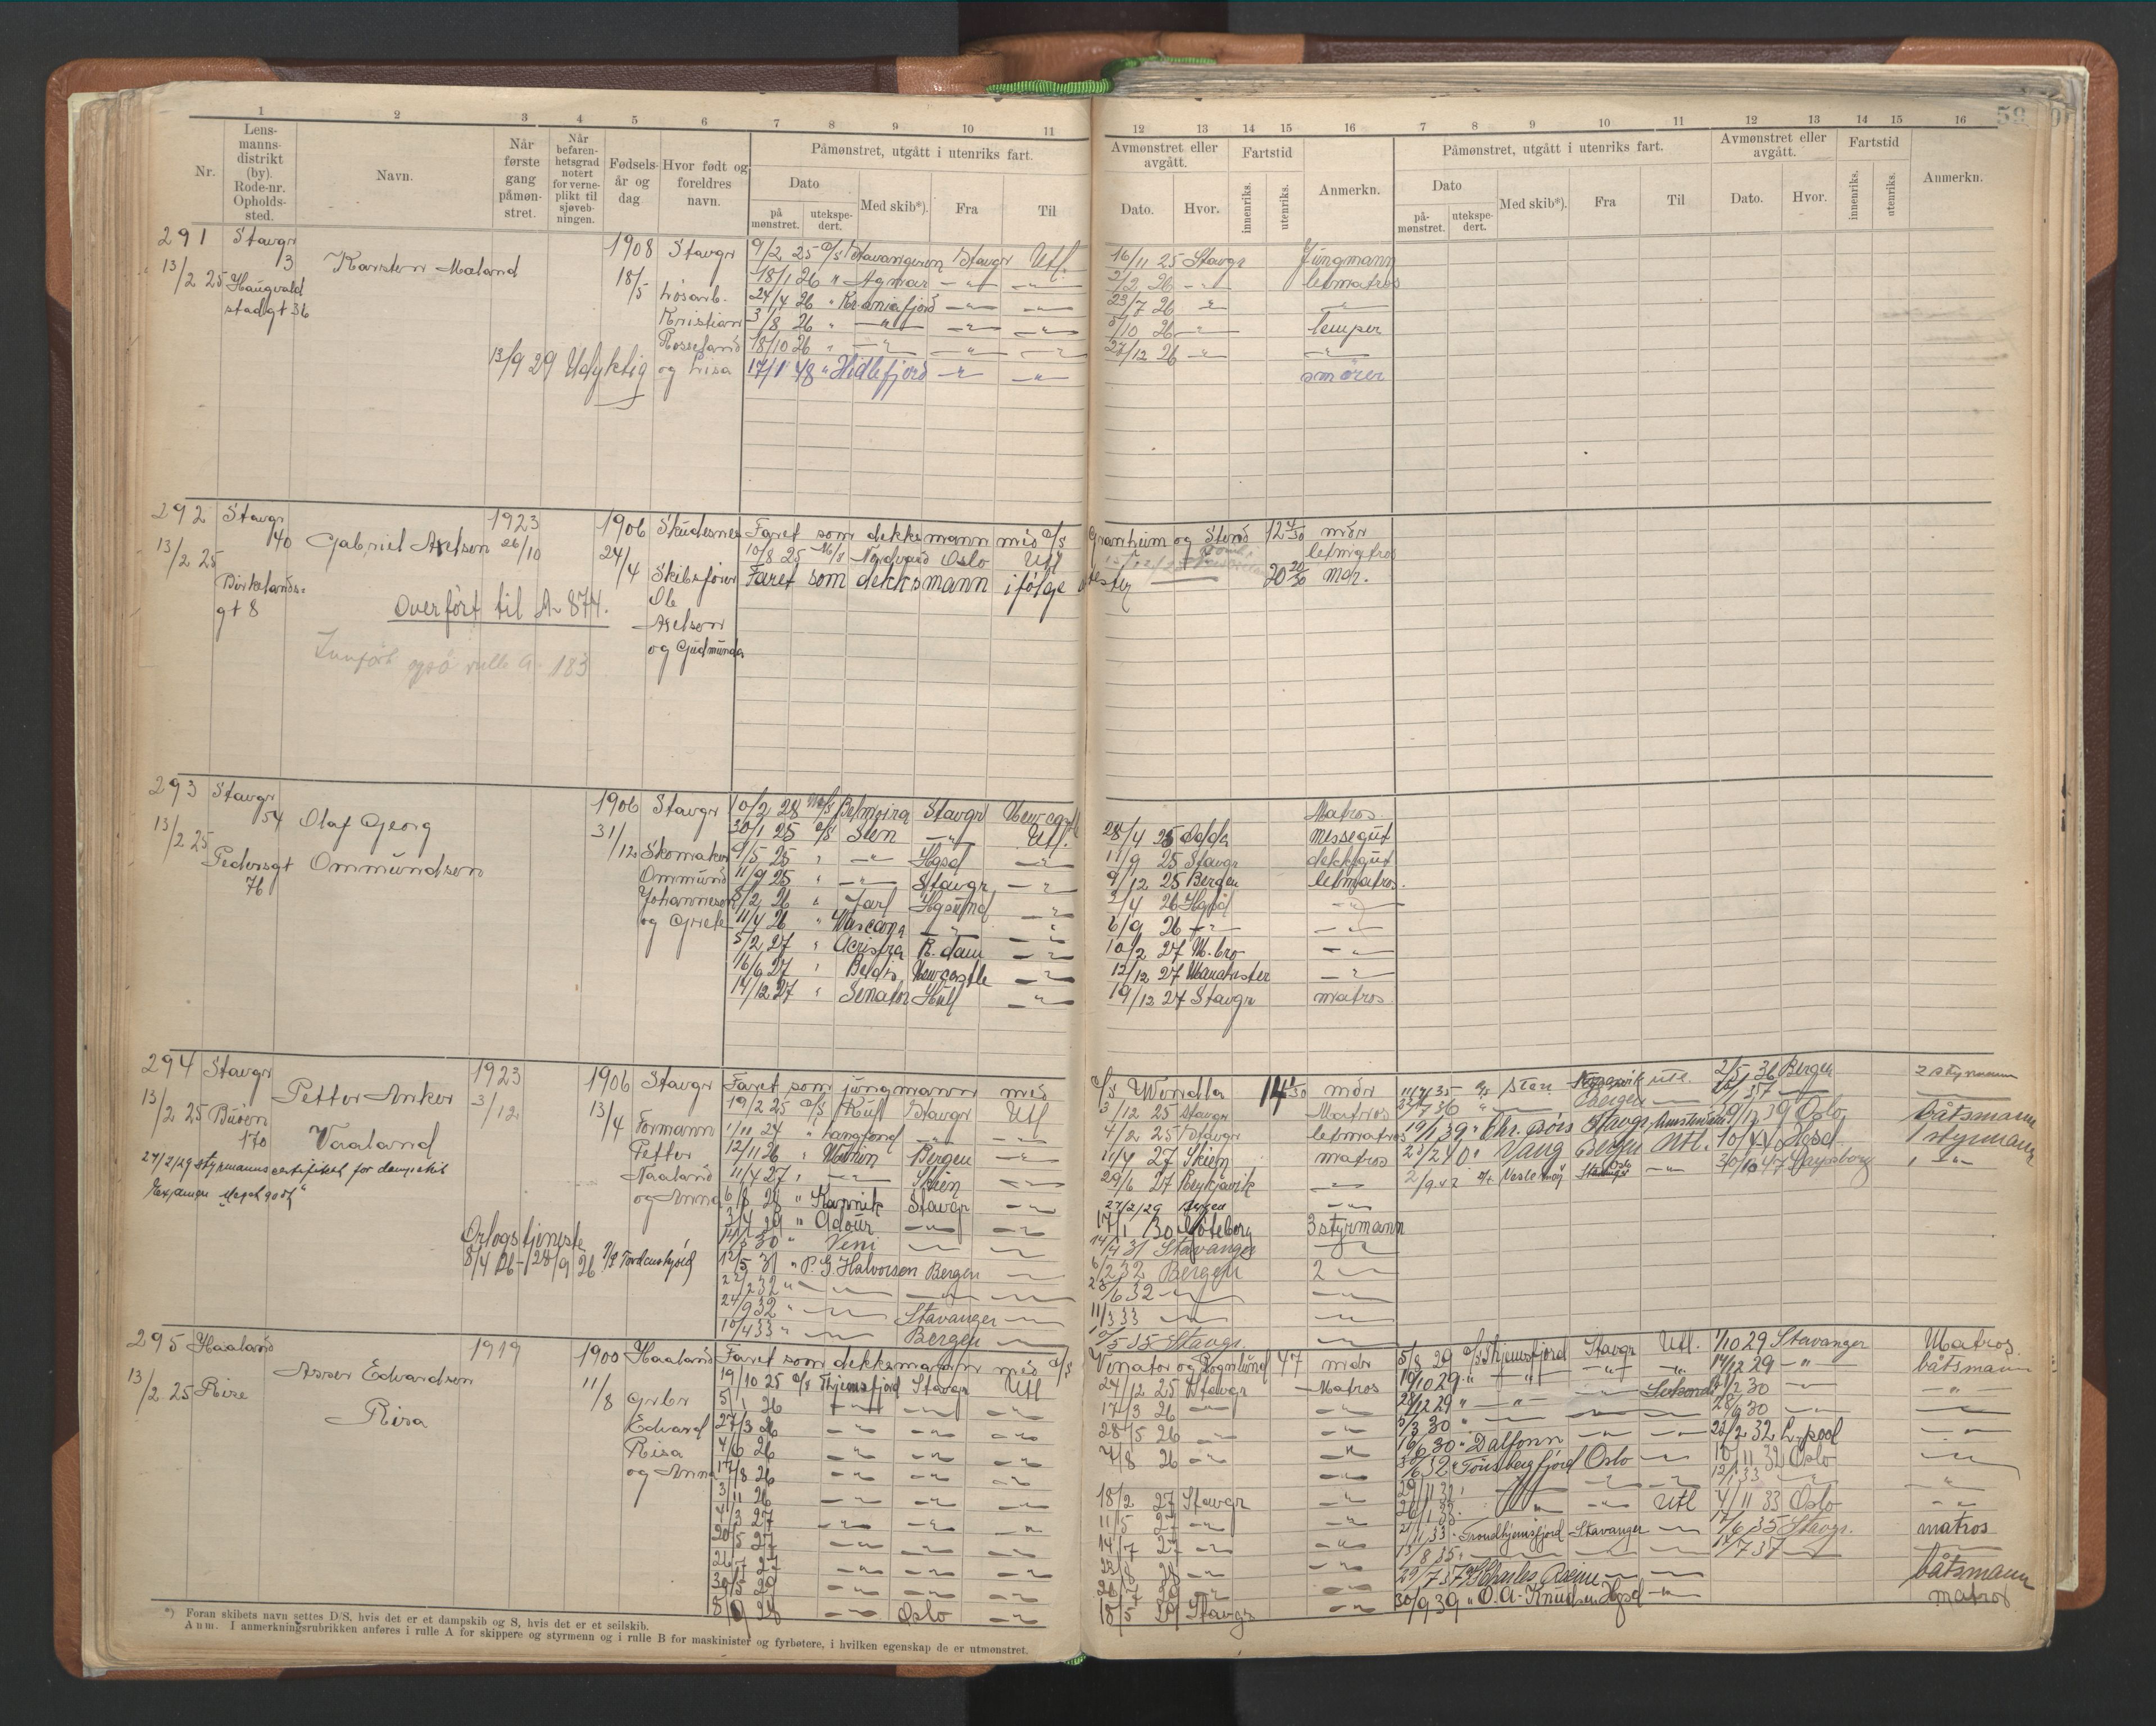 1 2 3 4 5 6 7 8 9 10 11
Nr.
Lens-manns-distrikt (by). Rode-nr. Opholds-sted.
Navn.
Når første gang påmøn-stret.
Når befaren-hetsgrad notert for verne-plikt til sjøveb-ningen.
Fødsels-år og dag
Hvor født og foreldres navn.
Påmønstret, utgått i utenriks fart.
Dato
på mønstret.
utekspe-dert.
Med skib*).
Fra
Til
12 13 14 15 16 7 8 9 10 11 12 13 14 15 16
Avmønstret eller avgått.
Dato. Hvor.
Fartstid
innenriks. utenriks.
Anmerkn.
Påmønstret, utgått i utenriks fart.
Dato
på-mønstret. utekspe-dert.
Med skib*). Fra Til
Avmønstret eller avgått.
Dato. Hvor.
Fartstid
innenriks. utenriks.
Anmerkn.
59
291 Stavgr 3
13/2 25 Haugvaldstadgt 36
Karsten Maland
1908 18/5
Stavgr
Løsarb.
Kristian
Rosseland
og Lisa
13/9 29 Udyktig
9/2 25 D/S Stavangeren Stavgr Utl. 16/11 25 Stavgr Jungmann
18/1 26 " Agnar -"- -"- 2/2 26 -"- letmatros
24/4 26 " Kr.aniafjord -"- -"- 23/7 26 -"- -"-
3/8 26 " -"- -"- -"- 5/10 26 -"- lemper
18/10 26 " -"- -"- -"- 27/12 26 -"- -"-
17/1 48 " Hidlefjord -"- -"- smører
292 Stavgr 40
13/2 25 Birkelandsgt 8
Gabriel Axelsen
1923 26/10
1906 24/4
Skudesnes
Skibsfører
Ole
Axelson
og Gudmunda
Overført til A 874.
også rulle A 183
Faret som dekksmann med D/S Granheim og Stord 12 4/30 mdr
10/8 25 M/S Nordvard Oslo Utl letmatros
Faret som dekksmann ifølge attester 20 20/30 mdr.
293 Stavgr 54
13/2 25 Pedersgt 76
Olaf Georg
Ommundsen
1906 31/12
Stavgr
Skomaker
Ommund
Johannesen
og Grete
10/2 28 M/S Belmoira Stavgr Newcastle Matros
30/1 25 D/S Sten -"- Utl. 28/4 25 Odda Messegut
9/5 25 " -"- Hgsd -"- 11/9 25 Stavgr dekkgut
11/9 25 " -"- Stavgr -"- 9/12 25 Bergen letmatros.
8/2 26 " Jarl Hgsund -"- 2/4 26 Hgsd -"-
11/4 26 " Wascana -"- -"- 6/9 26 -"- -"-
5/2 27 " R.dam -"- 10/2 27 M.bro -"-
16/6 27 " Beldis Newcastle -"- 12/12 27 Manchester -"-
14/12 27 " Senator Hull -"- 19/12 27 Stavgr matros
294 Stavgr
13/2 25 Buøen 170
Petter Anker
Vaaland
1923 3/12
1906 13/4
Stavgr
Formann
Petter
Vaaland
og Anna
27/2 29 styrmannscertifikat for dampskib
Orlogstjeneste
8/4 26 - 28/9 26 P/S Tordenskjold
Faret som jungmann med D/S Wonda 14 1/30 mdr
19/2 25 D/S Kul Stavgr Utl 3/12 25 Stavgr Matros
1/11 24 " Langfond -"- -"- 4/2 25 Stavgr letmatros
12/11 26 " Bergen -"- 11/4 27 Skien matros
11/4 27 " -"- Skien -"- 29/6 27 Reykjavik -"-
6/8 28 " Karmik Stavgr -"- 27/2/29 Bergen -"-
3/4 29 " Adour -"- -"- 17/1 30 Göteborg 3 styrmann
30 " Veni -"- -"- 14/4 31 Stavanger -"-
12/5 31 " P. G. Halvorsen Bergen -"- 6/2 32 Bergen 2 -"-
22/2 32 " -"- -"- -"- 25/6 32 -"- -"-
24/9 32 " -"- Stavanger -"- 11/3 33 -"- -"-
10/4 33 " -"- Bergen -"- 5 35 Stavgr. -"-
11/7 35 D/S Sten utl. 2/5 36 Bergen 2 styrmann
36 " -"- Bergen -"- 37 -"-
19/1 39 " Chr. Bors Stavgr Amsterdam 29/12 39 Oslo båtsmann
23/2 40 " Vang Bergen Utl. 10/4 40 Hgsd. 1 styrmann
2/9 42 Vestlemøy -"- 30/10 47 Sarpsborg " -"-
295 Haaland
13/2 25 Rise
Asser Edvardsen
Risa
1919
1900 11/8
Haaland
Grbr
Edvard
Risa
og Anna
Faret som dekksmann med D/S Venator og Rogalund 47 mdr
19/10 25 D/S Thjemsfjord Stavgr Utl 24/12 25 Stavgr Matros
5/1 26 -"- -"- -"- 17/3 26 -"- -"-
27/3 26 -"- -"- -"- 28/5 26 -"- -"-
4/6 26 -"- -"- -"- 7/8 26 -"- -"-
17/8 26 -"- -"- -"- -"-
3/11 26 -"- -"- -"- 18/2 27 Stavgr -"-
4/3 27 -"- -"- -"- 11/5 27 -"- -"-
20/5 27 -"- -"- -"- 14/7 27 -"- -"-
26/7 27 -"- -"- -"- 28 -"- -"-
30/5 29 -"- -"- -"- -"-
5/9 28 -"- Oslo -"- 18/5 29 Stavgr -"-
5/8 29 D/S Thjemsfjord Stavgr Utl. 1/10 29 Stavanger Matros
10/10 29 " -"- -"- -"- 14/12 29 -"- båtsmann
28/12 29 " -"- -"- 30 -"- -"-
5/3 30 " -"- -"- -"- 28/6 30 -"- -"-
16/6 30 " Dalfonn -"- -"- 22/2 32 L.pool -"-
6 32 " Tønsbergfjord Oslo -"- 11 32 Oslo -"-
29/11 32 " -"- -"- -"- 12/1 33 -"- -"-
26/1 33 " -"- -"- Utl 4/11 33 Oslo -"-
21/11 33 " Trondhjemsfjord Stavanger -"- 17/6 35 Stavgr. matros
13/8 35 " -"- -"- -"- 7 37 -"-
29/7 37 Charles Racine -"- -"- båtsmann
30/9 39 " O. A. Knudsen Hgsd -"- matros
*) Foran skibets navn settes D/S, hvis det er et dampskib og S, hvis det er et seilskib.
Anm. I anmerkningsrubrikken anføres i rulle A for skippere og styrmenn og i rulle B for maskinister og fyrbøtere, i hvilken egenskap de er utmønstret.